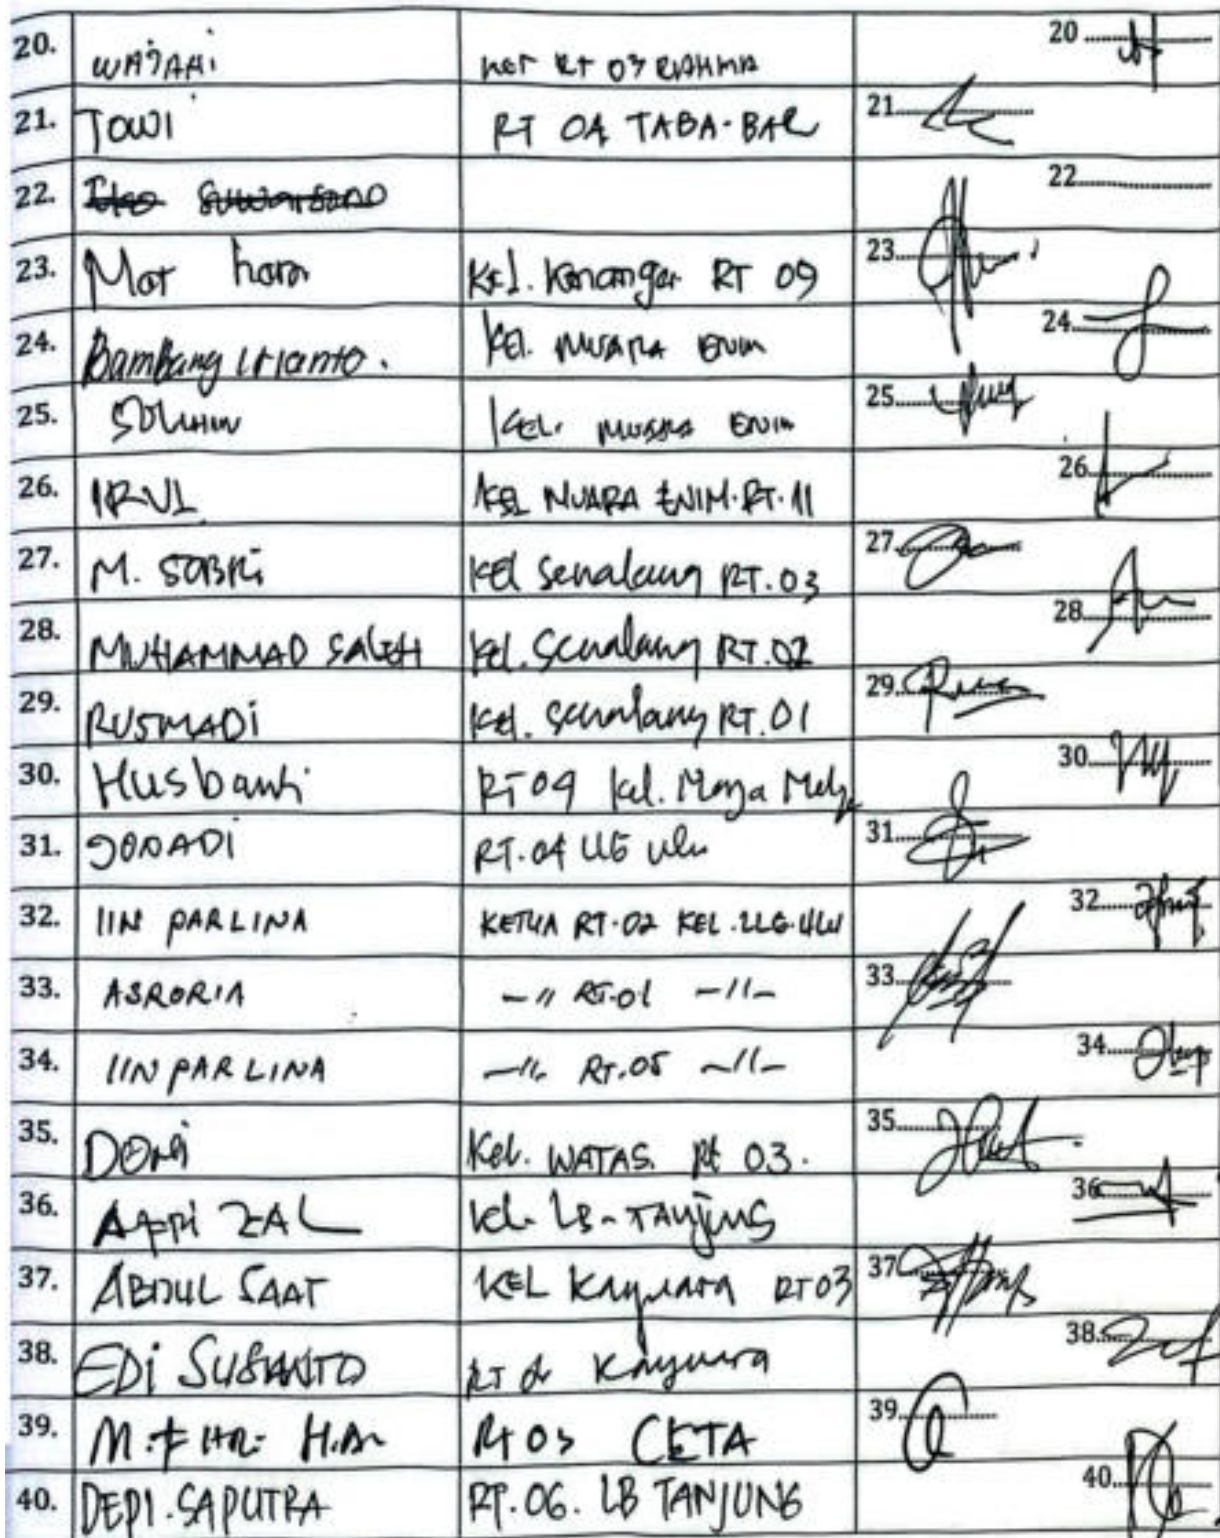 20. WAJAHI KET RT 03 RAHMA 20
21. TOWI RT 04 TABA-BAR 21
22. Eko Suwarsono 22
23. Mat hara Kel. Kenanga RT 09 23
24. Bambang irianto. Kel. MUARA ENIM 24
25. SOLIHIN KEL. MUARA ENIM 25
26. IRUL KEL MUARA ENIM.RT.11 26
27. M. SOBRi Kel Senalang RT.03 27
28. MUHAMMAD SALEH Kel. Senalang RT.02 28
29. RUSMADi Kel. Senalang RT.01 29
30. Husbanti RT 09 Kel. 30
31. JONADI RT.04 LLG ulu 31
32. IIN PARLINA KETUA RT.02 KEL.LLG.ULU 32
33. ASRORIA -"- RT.01 -"- 33
34. IIN PARLINA -"- RT.05 -"- 34
35. DONi Kel. WATAS. Rt 03. 35
36. ApRi ZAL Kel. LB-TANjUNG 36
37. ABDUL SAAT KEL Kayuara RT 03 37
38. EDi SUSANTO RT Kayuara 38
39. RT 03 CETA 39
40. DEPI.SAPUTRA RT.06. LB TANJUNG 40